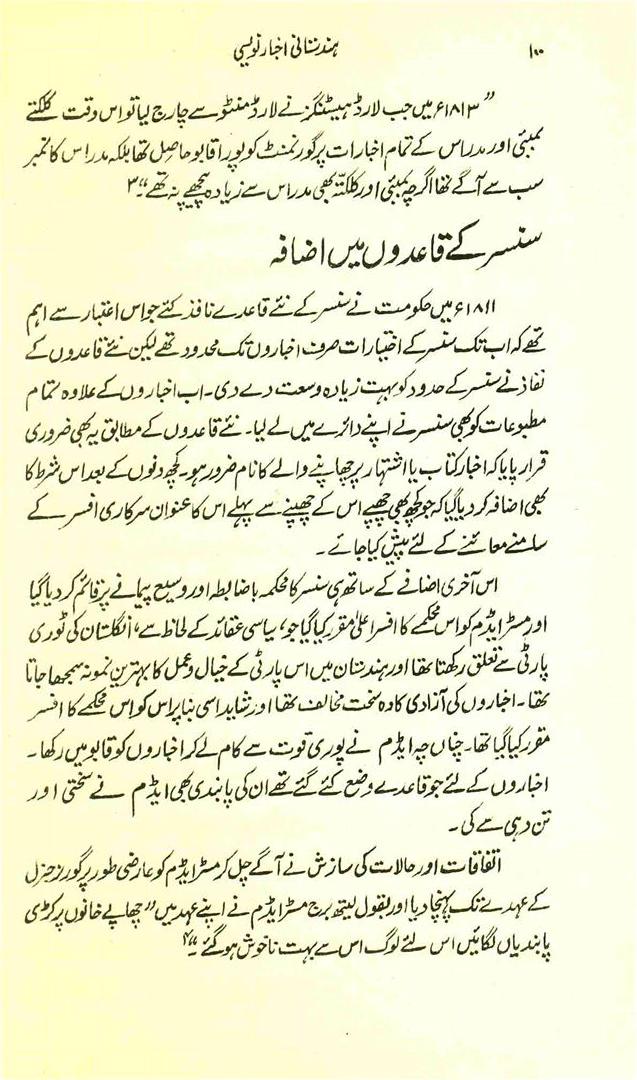 ۱۰۰ ہندستانی اخبار نویسی
”۱۸۱۳ء میں جب لارڈ ہیسٹنگز نے لارڈ منٹو سے چارج لیا تو اس وقت کلکتے
بمبئی اور مدراس کے تمام اخبارات پر گورنمنٹ کو پورا قابو حاصل تھا بلکہ مدراس کا نمبر
سب سے آگے تھا اگرچہ بمبئی اور کلکتہ بھی مدراس سے زیادہ پیچھے نہ تھے“۔۳
سنسر کے قاعدوں میں اضافہ
۱۸۱۱ء میں حکومت نے سنسر کے نئے قاعدے نافذ کئے جو اس اعتبار سے اہم
تھے کہ اب تک سنسر کے اختیارات صرف اخباروں تک محدود تھے لیکن نئے قاعدوں کے
نفاذ نے سنسر کے حدود کو بہت زیادہ وسعت دے دی۔ اب اخباروں کے علاوہ تمام
مطبوعات کو بھی سنسر نے اپنے دائرے میں لے لیا۔ نئے قاعدوں کے مطابق یہ بھی ضروری
قرار پایا کہ اخبار کتاب یا اشتہار پر چھاپنے والے کا نام ضرور ہو۔ کچھ دنوں کے بعد اس شرط کا
بھی اضافہ کر دیا گیا کہ جو کچھ بھی چھپے اس کے چھپنے سے پہلے اس کا عنوان سرکاری افسر کے
سامنے معائنے کے لئے پیش کیا جائے۔
اس آخری اضافے کے ساتھ ہی سنسر کا محکمہ باضابطہ اور وسیع پیمانے پر قائم کر دیا گیا
اور مسٹر ایڈم کو اس محکمے کا افسر اعلیٰ مقرر کیا گیا جو، سیاسی عقائد کے لحاظ سے، انگلستان کی ٹوری
پارٹی سے تعلق رکھتا تھا اور ہندستان میں اس پارٹی کے خیال و عمل کا بہترین نمونہ سمجھا جاتا
تھا۔ اخباروں کی آزادی کا وہ سخت مخالف تھا اور شاید اسی بنا پر اس کو اس محکمے کا افسر
مقرر کیا گیا تھا۔ چناں چہ ایڈم نے پوری قوت سے کام لے کر اخباروں کو قابو میں رکھا۔
اخباروں کے لئے جو قاعدے وضع کئے گئے تھے ان کی پابندی بھی ایڈم نے سختی اور
تن دہی سے کی۔
اتفاقات اور حالات کی سازش نے آگے چل کر مسٹر ایڈم کو عارضی طور پر گورنر جنرل
کے عہدے تک پہنچا دیا اور بقول لیتھ برج مسٹر ایڈم نے اپنے عہد میں ”چھاپے خانوں پر کڑی
پابندیاں لگائیں اس لئے لوگ اس سے بہت ناخوش ہو گئے“۔۴